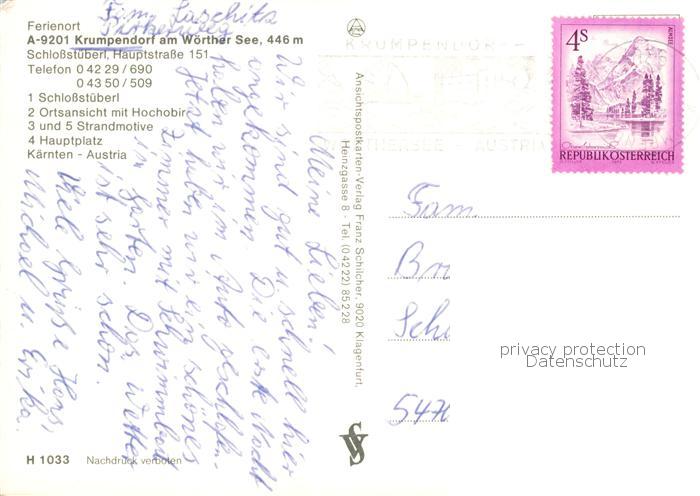 Fam. Laschitz
Ferienort
A-9201 Krumpendorf am Wörther See, 446 m
Schloßstüberl, Hauptstraße 151
Telefon 0 42 29 / 690
0 43 50 / 509
1 Schloßstüberl
2 Ortsansicht mit Hochobir
3 und 5 Strandmotive
4 Hauptplatz
Kärnten - Austria
Meine Lieben!
Wir sind gut u. schnell hier
angekommen. Die erste Nacht
haben wir im Auto geschlafen.
Jetzt haben wir ein schönes
Zimmer mit Schwimmbad
im Garten. Das Wetter
ist sehr schön.
Viele Grüße Hans,
Michael u. Erika.
H 1033 Nachdruck verboten
Ansichtspostkarten-Verlag Franz Schilcher, 9020 Klagenfurt,
Heinzgasse 8 - Tel. (0 42 22) 85 2 28
KRUMPENDORF
WÖRTHERSEE - AUSTRIA
4 S
ALMSEE
REPUBLIK ÖSTERREICH
Fam.
Br
Sch
547
privacy protection
Datenschutz